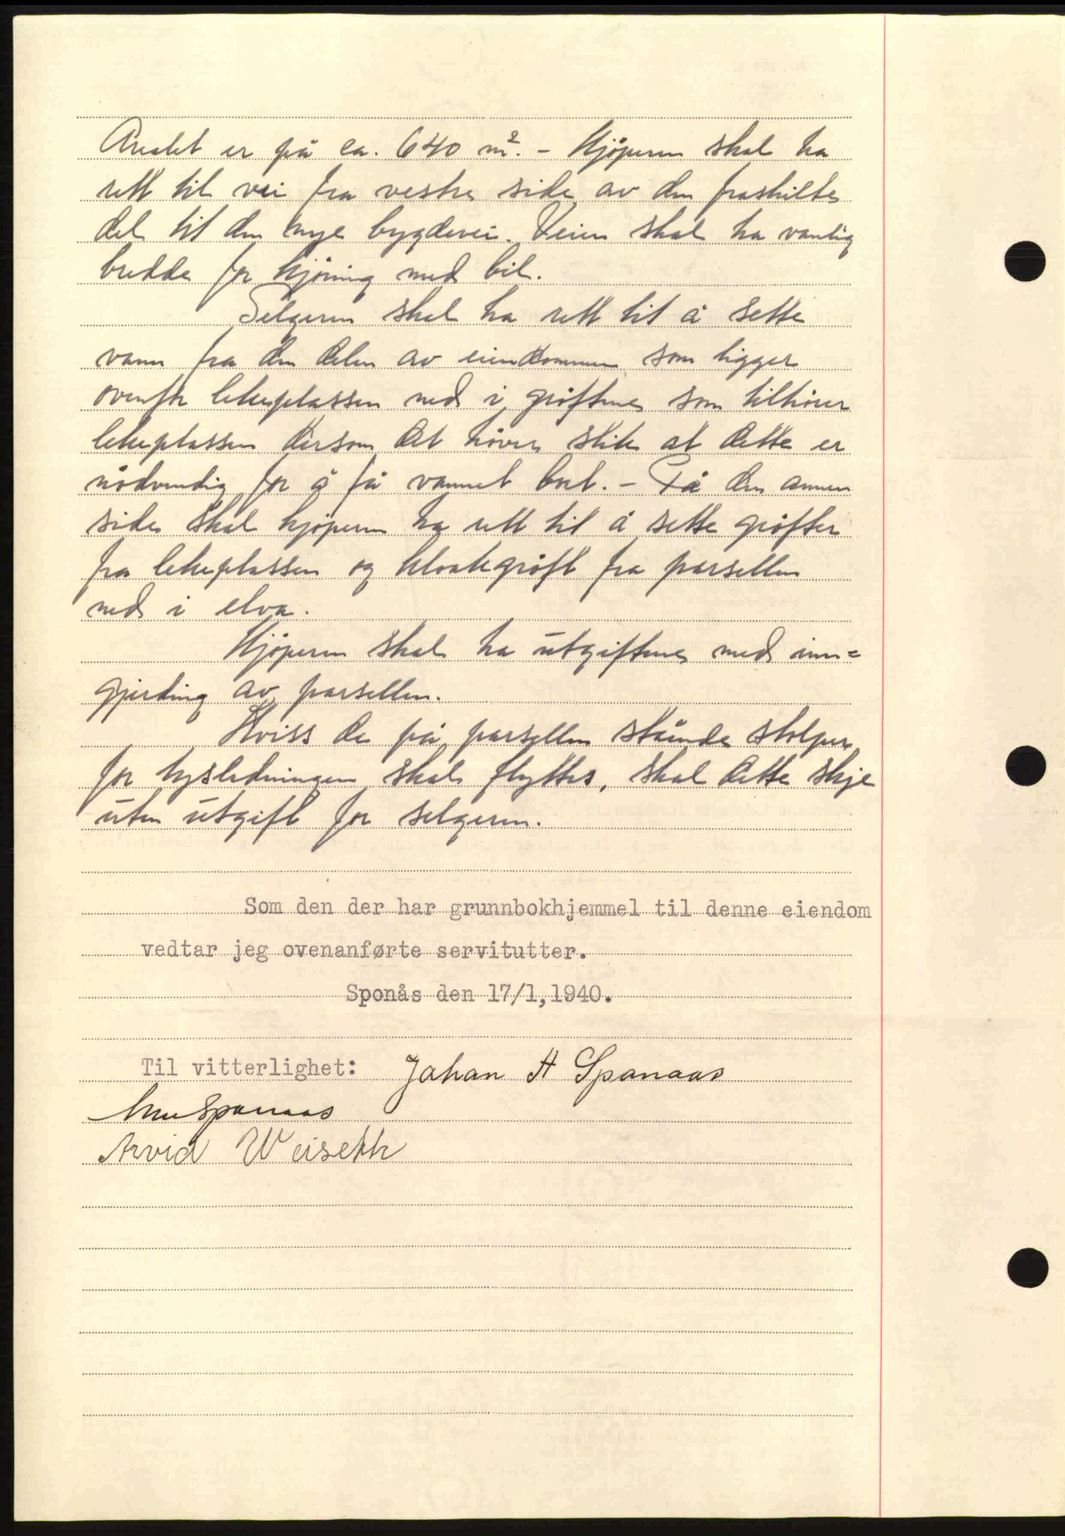 Arealet er på ca. 640 m². - Kjøperen skal ha
rett til vei fra vestre side av den fraskilte
del til den nye bygdevei. Veien skal ha vanlig
bredde for kjøring med bil.
Selgeren skal ha rett til å sette
vann fra den delen av eiendommen som ligger
ovenfor lekeplassen ned i grøftene som tilhører
lekeplassen dersom det høver slik at dette er
nødvendig for å få vannet bort. - På den annen
side skal kjøperen ha rett til å sette grøfter
fra lekeplassen og kloakkgrøft fra parsellen
ned i elva.
Kjøperen skal ha utgiftene med inn=
gjerding av parsellen.
Hviss de på parsellen stående stolper
for lysledningen skal flyttes, skal dette skje
uten utgift for selgeren.
Som den der har grunnbokhjemmel til denne eiendom
vedtar jeg ovenanførte servitutter.
Sponås den 17/1,1940.
Til vitterlighet: Johan A Sponaas
Sponaas
Arvid Weiseth